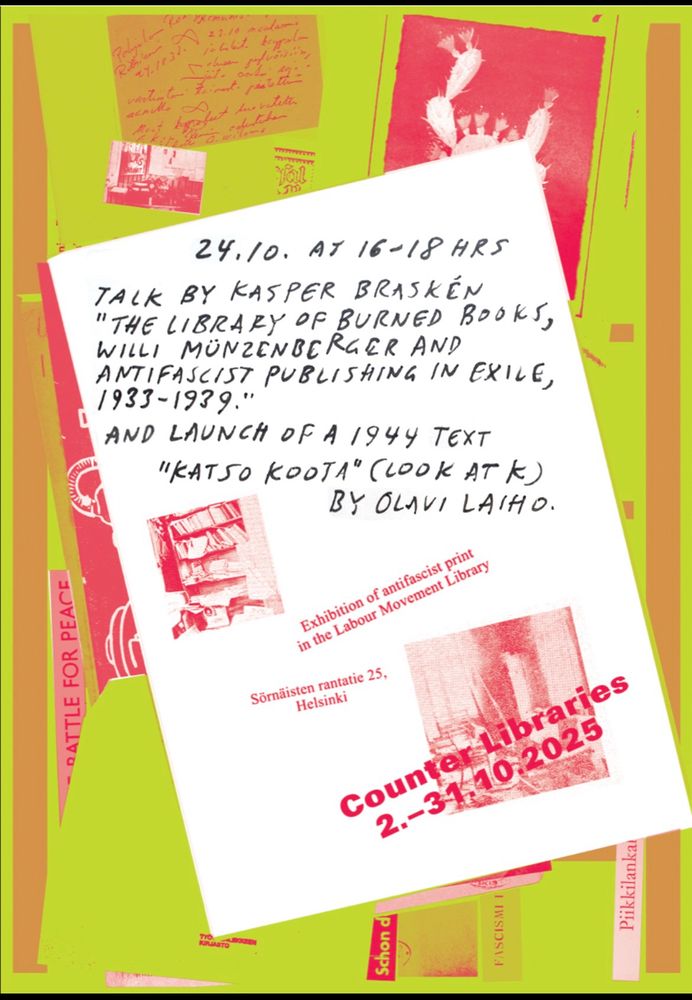 24.10. AT 16-18 HRS
TALK BY KASPER BRASKÉN
"THE LIBRARY OF BURNED BOOKS,
WILLI MÜNZENBERGER AND
ANTIFASCIST PUBLISHING IN EXILE,
1933-1939."
AND LAUNCH OF A 1944 TEXT
"KATSO KOOTA" (LOOK AT K)
BY OLAVI LAIHO.
Exhibition of antifascist print
in the Labour Movement Library
Sörnäisten rantatie 25,
Helsinki
Counter Libraries
2.–31.10.2025
BATTLE FOR PEACE
KIRJASTO
Schon d
FASCISMI
Piikkilanka